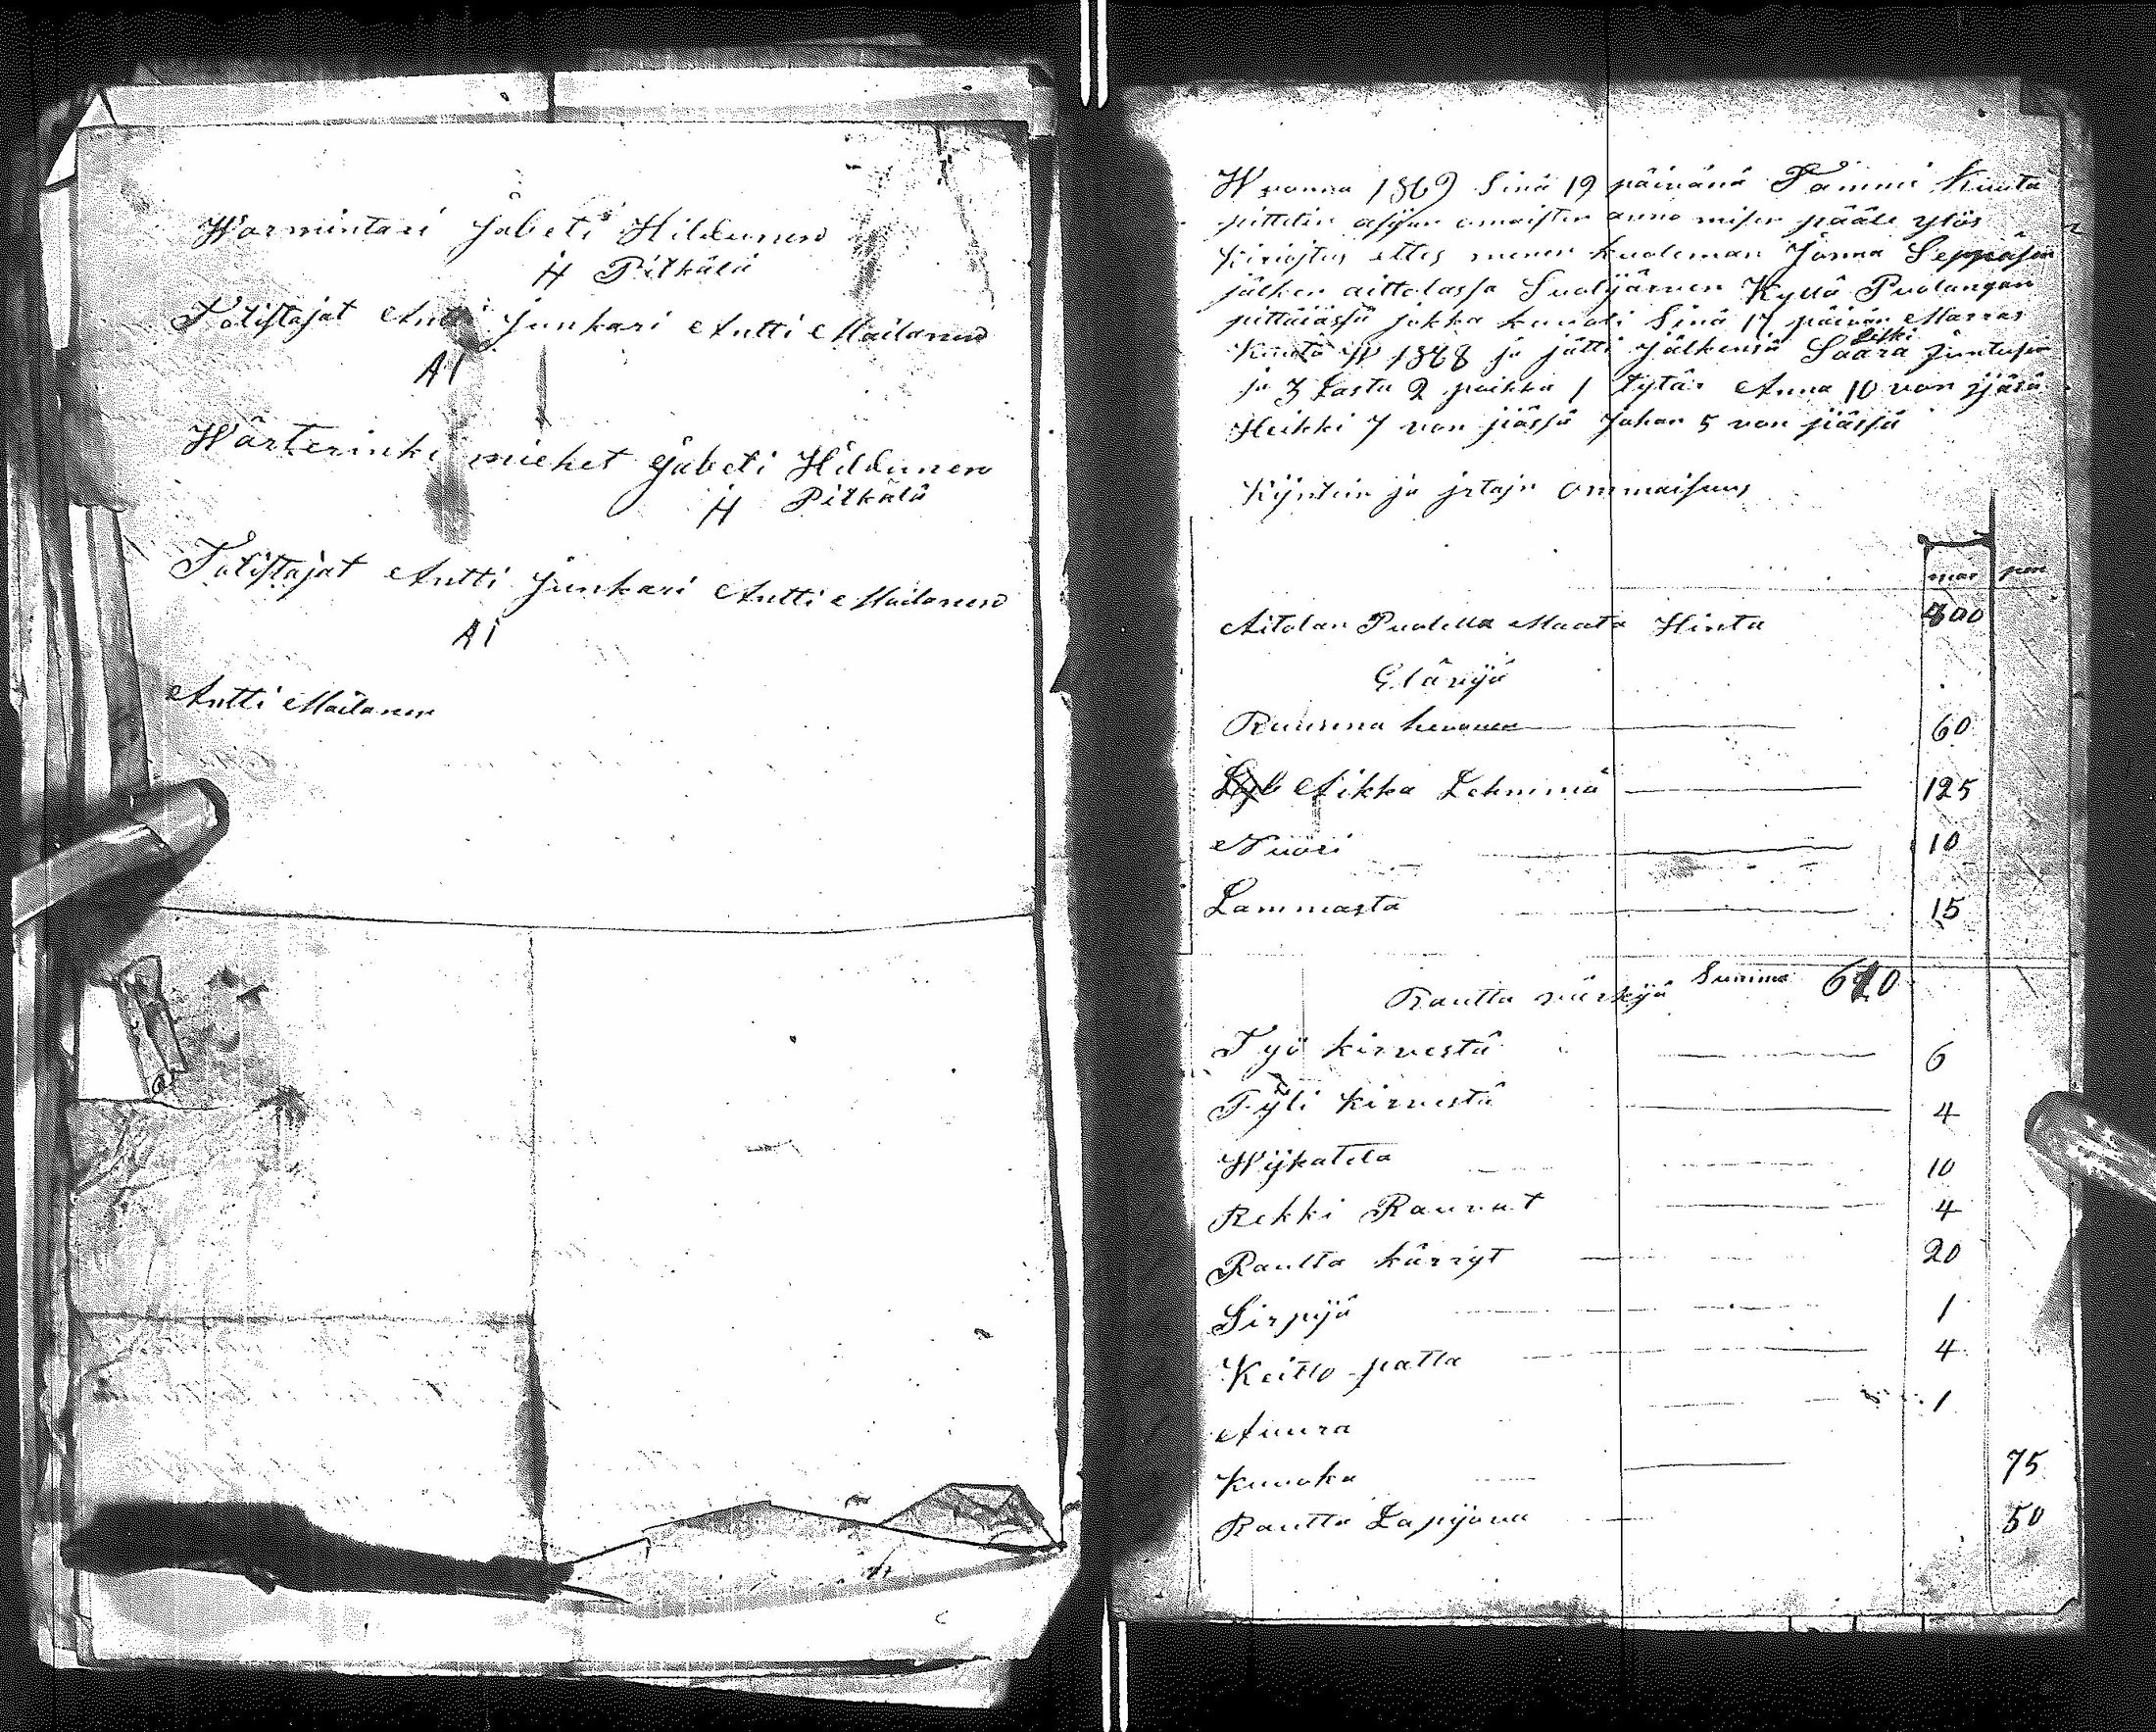 Warmintari Jabeti Hildunen
H Pitkälä
Totistajat Antti Junkari Antti Mailanen
AI
Wärterinki miehet Jabeti Hildunen
H Pitkälä
Totistajat Antti Junkari Antti Mailanen
AI
Antti Mailanen
Wuonna 1869 Sinä 19 päivänä Tammi Kuuta
pittetin omaisten anno misen pääle ylös
Kirjotus kuoleman Jonna Seppäsen
jälken aittolassa Suolijärven Kyllä Puolangan
pittäjässä jokka kuuoli Sinä 17 päivän Marras
Kuuta W 1868 ja jätti jälkensä Leski Saara Juntusen
ja 3 Lasta 2 poikka 1 tytär Anna 10 von
Heikki 7 von jiässä Johan 5 von jiässä
Kijntein ja jrtajn ommaisuus
mar pen
Aitolan Puolella Maata Hinta 400
Elävijä
Ruunna hevonen 60
Aikka Lehmmä 125
Nuori 10
Lammasta 15
Summa 610
Rautta
Työ kirvestä 6
Tyli kirvestä 4
Wijkatela 10
Rekki Rauvat 4
Rautta kärryt 20
Sirpijä 1
Keitto patta 4
Auura 1
Kuuoka 75
Rautta Lapijona 50